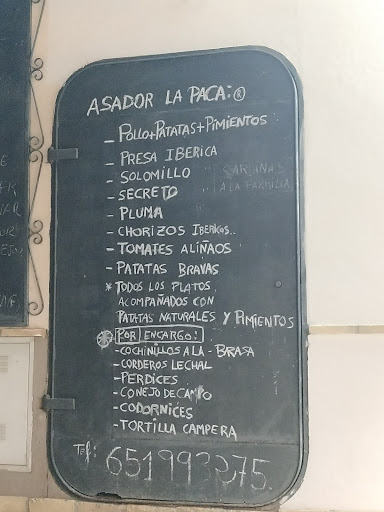 ASADOR LA PACA:®
- POLLO+PATATAS+PIMIENTOS
- PRESA IBERICA
- SOLOMILLO
SARDINAS
A LA PARRILLA
- SECRETO
- PLUMA
- CHORIZOS IBERICOS..
- TOMATES ALIÑAOS
- PATATAS BRAVAS
* TODOS LOS PLATOS
ACOMPAÑADOS CON
PATATAS NATURALES Y PIMIENTOS
POR ENCARGO:
- COCHINILLOS A LA - BRASA
- CORDEROS LECHAL
- PERDICES
- CONEJO DE CAMPO
- CODORNICES
- TORTILLA CAMPERA
TEL: 651993275.